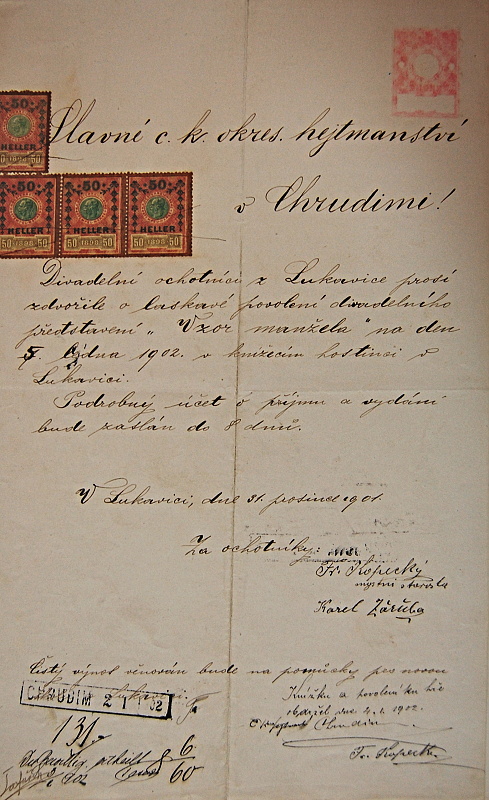 Slavné c. k. okres. hejtmanství
v Chrudimi!
50
HELLER
1898
50
HELLER
50 1898 50
50
HELLER
50 1898 50
50
HELLER
50 1898 50
Divadelní ochotníci z Lukavice prosí
zdvořile o laskavé povolení divadelního
představení „Vzor manžela" na den
ledna 1902. v knížecím hostinci v
Lukavici.
Podrobný účet o příjmu a vydání
bude zaslán do 8 dnů.
V Lukavici, dne 31. prosince 1901.
Za ochotníky:
Fr. Kopecký
místní starosta
Karel Záruba
Čistý výnos věnován bude na pomůcky pro novou
CHRUDIM 2 1 02
131
obdržel dne 4.1. 1902.
Chrudim
Fr. Kopecký
6
60